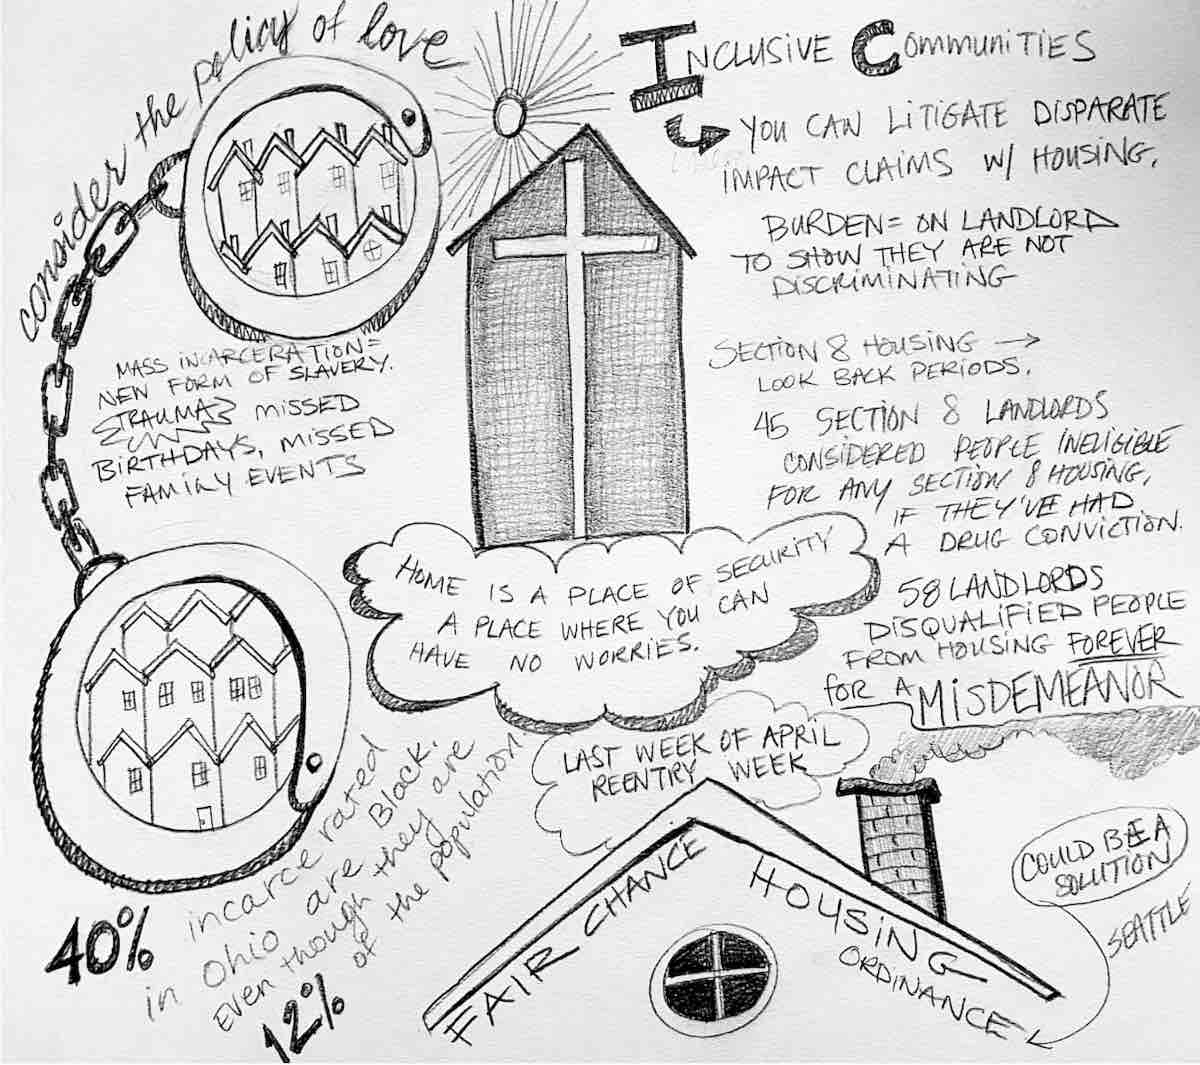 consider the policy of love
INCLUSIVE COMMUNITIES
YOU CAN LITIGATE DISPARATE
IMPACT CLAIMS W/ HOUSING.
BURDEN = ON LANDLORD
TO SHOW THEY ARE NOT
DISCRIMINATING
MASS INCARCERATION =
NEW FORM OF SLAVERY.
TRAUMA MISSED
BIRTHDAYS, MISSED
FAMILY EVENTS
SECTION 8 HOUSING →
LOOK BACK PERIODS.
45 SECTION 8 LANDLORDS
CONSIDERED PEOPLE INELIGIBLE
FOR ANY SECTION 8 HOUSING,
IF THEY'VE HAD
A DRUG CONVICTION.
58 LANDLORDS
DISQUALIFIED PEOPLE
FROM HOUSING FOREVER
for A MISDEMEANOR
HOME IS A PLACE OF SECURITY
A PLACE WHERE YOU CAN
HAVE NO WORRIES.
LAST WEEK OF APRIL
REENTRY WEEK
40% incarcerated
in Ohio are Black.
Even though they are
12% of the population
FAIR CHANCE HOUSING
ORDINANCE
COULD BE A
SOLUTION
SEATTLE